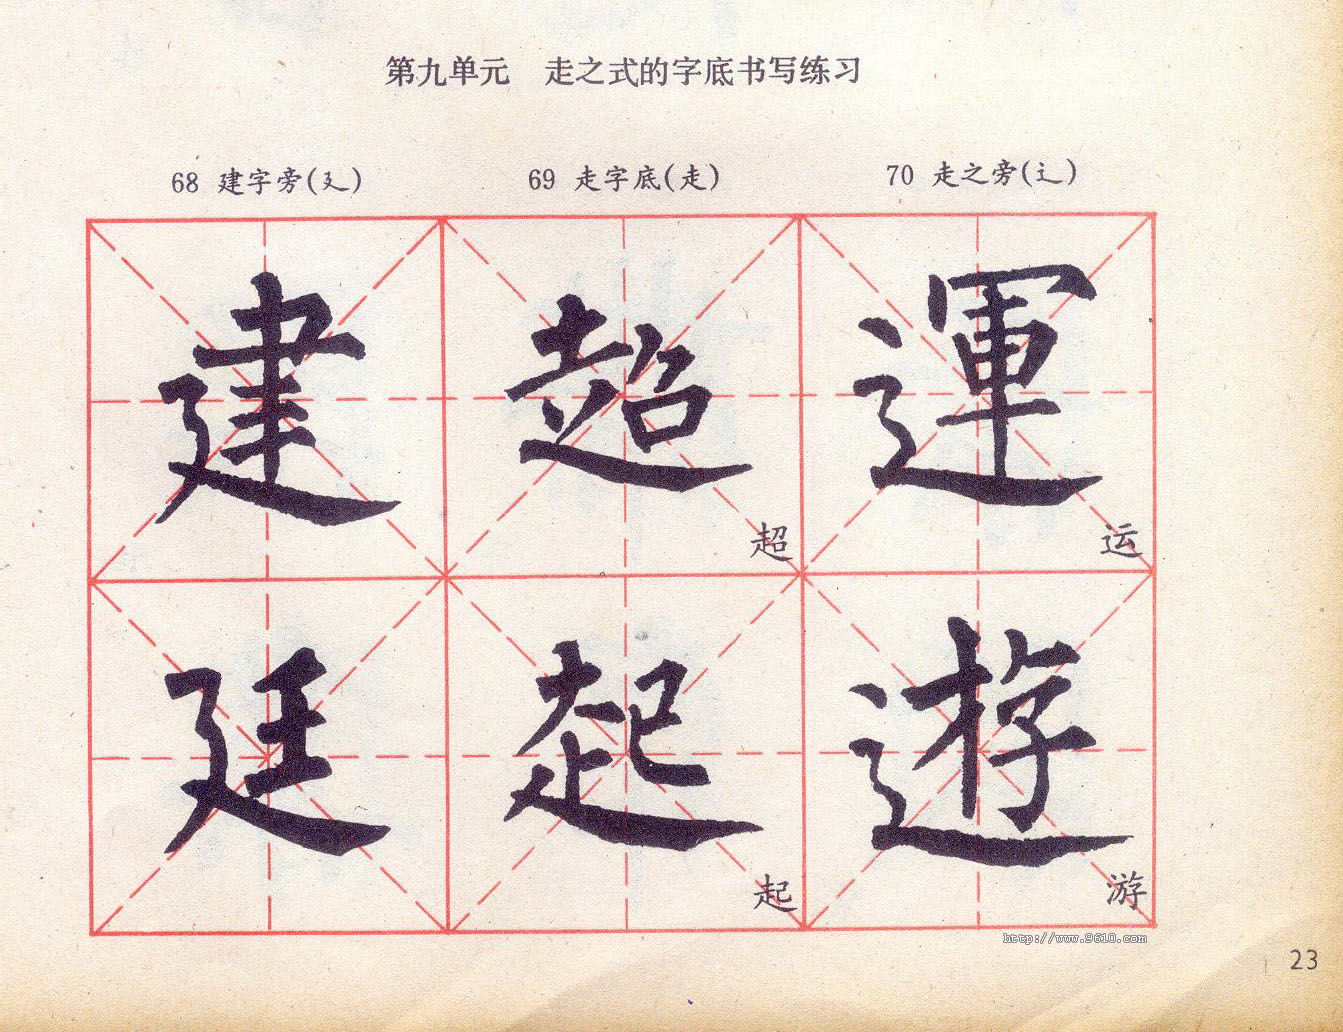 第九单元 走之式的字底书写练习
68 建字旁(廴) 69 走字底(走) 70 走之旁(辶)
建 超 運
超 运
廷 起 遊
起 游
http://www.9610.com
23